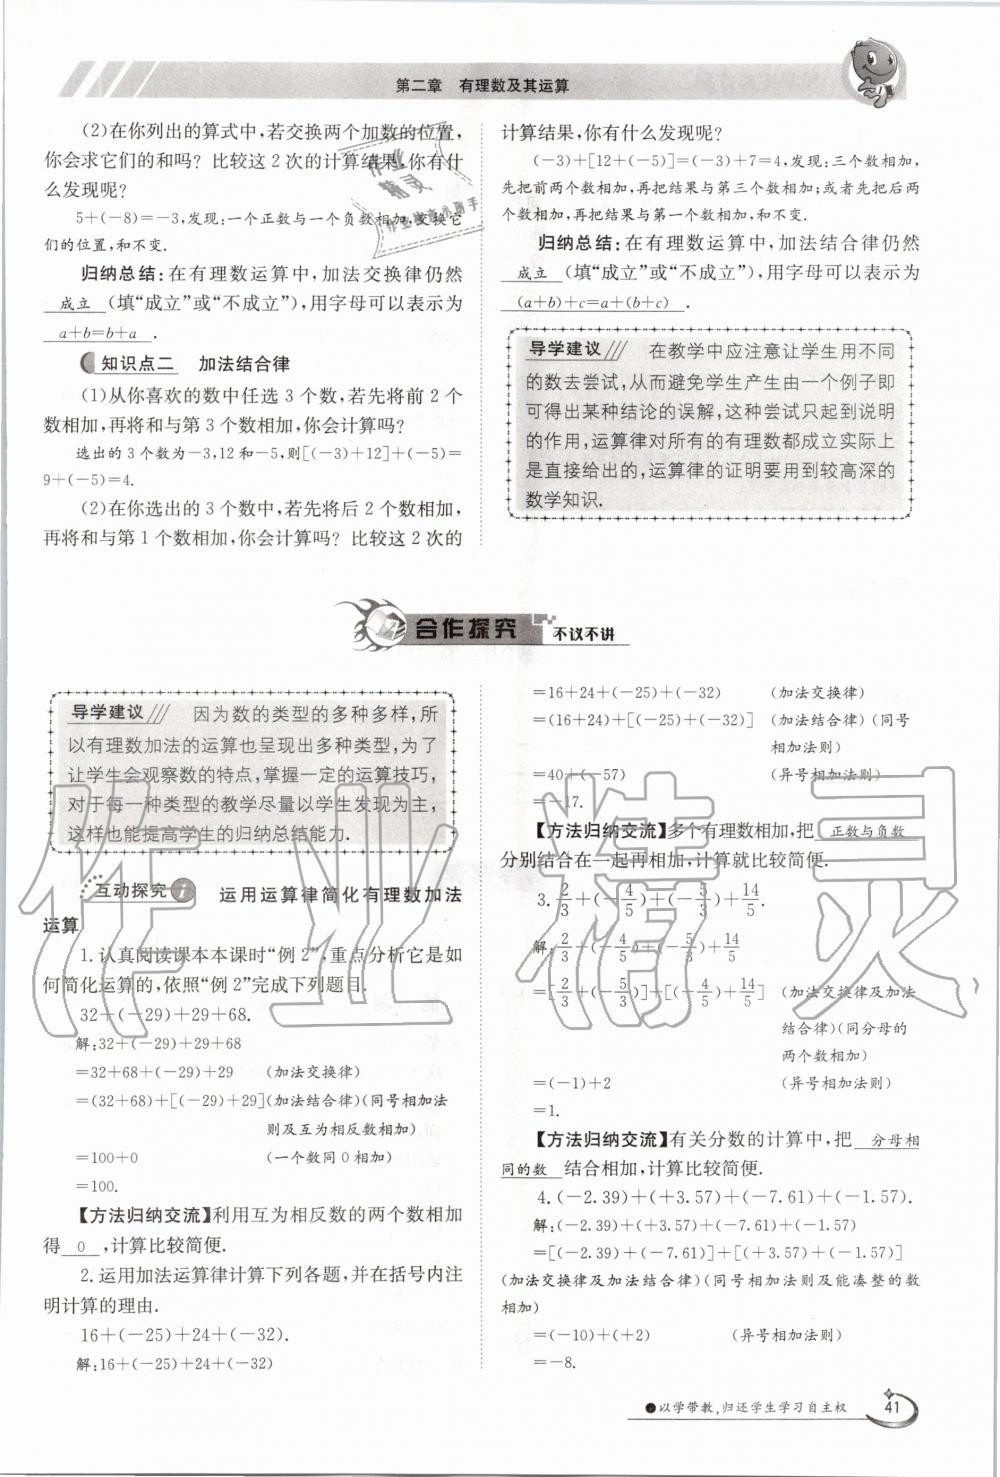 第二章 有理数及其运算
(2)在你列出的算式中,若交换两个加数的位置,
你会求它们的和吗? 比较这2次的计算结果,你有什
么发现呢?
5+(-8)=-3,发现:一个正数与一个负数相加,交换它
们的位置,和不变.
归纳总结:在有理数运算中,加法交换律仍然
成立 (填“成立”或“不成立”),用字母可以表示为
a+b=b+a .
知识点二 加法结合律
(1)从你喜欢的数中任选3个数,若先将前2个
数相加,再将和与第3个数相加,你会计算吗?
选出的3个数为-3,12和-5,则[(-3)+12]+(-5)=
9+(-5)=4.
(2)在你选出的3个数中,若先将后2个数相加,
再将和与第1个数相加,你会计算吗? 比较这2次的
计算结果,你有什么发现呢?
(-3)+[12+(-5)]=(-3)+7=4,发现:三个数相加,
先把前两个数相加,再把结果与第三个数相加;或者先把后两
个数相加,再把结果与第一个数相加,和不变.
归纳总结:在有理数运算中,加法结合律仍然
成立 (填“成立”或“不成立”),用字母可以表示为
(a+b)+c=a+(b+c) .
导学建议 在教学中应注意让学生用不同
的数去尝试,从而避免学生产生由一个例子即
可得出某种结论的误解,这种尝试只起到说明
的作用,运算律对所有的有理数都成立实际上
是直接给出的,运算律的证明要用到较高深的
数学知识.
合作探究 不议不讲
导学建议 因为数的类型的多种多样,所
以有理数加法的运算也呈现出多种类型,为了
让学生会观察数的特点,掌握一定的运算技巧,
对于每一种类型的教学尽量以学生发现为主,
这样也能提高学生的归纳总结能力.
互动探究1 运用运算律简化有理数加法
运算
1.认真阅读课本本课时“例2”,重点分析它是如
何简化运算的,依照“例2”完成下列题目.
32+(-29)+29+68.
解:32+(-29)+29+68
=32+68+(-29)+29 (加法交换律)
=(32+68)+[(-29)+29](加法结合律)(同号相加法
则及互为相反数相加)
=100+0 (一个数同0相加)
=100.
【方法归纳交流】利用互为相反数的两个数相加
得 0 ,计算比较简便.
2.运用加法运算律计算下列各题,并在括号内注
明计算的理由.
16+(-25)+24+(-32).
解:16+(-25)+24+(-32)
=16+24+(-25)+(-32) (加法交换律)
=(16+24)+[(-25)+(-32)] (加法结合律)(同号
相加法则)
=40+(-57) (异号相加法则)
=-17.
【方法归纳交流】多个有理数相加,把 正数与负数
分别结合在一起再相加,计算就比较简便.
3.2/3+(-4/5)+(-5/3)+14/5.
解:2/3+(-4/5)+(-5/3)+14/5
=[2/3+(-5/3)]+[(-4/5)+14/5] (加法交换律及加法
结合律)(同分母的
两个数相加)
=(-1)+2 (异号相加法则)
=1.
【方法归纳交流】有关分数的计算中,把 分母相
同的数 结合相加,计算比较简便.
4.(-2.39)+(+3.57)+(-7.61)+(-1.57).
解:(-2.39)+(+3.57)+(-7.61)+(-1.57)
=[(-2.39)+(-7.61)]+[(+3.57)+(-1.57)]
(加法交换律及加法结合律)(同号相加法则及能凑整的数
相加)
=(-10)+(+2) (异号相加法则)
=-8.
●以学带教,归还学生学习自主权 41
作业精灵